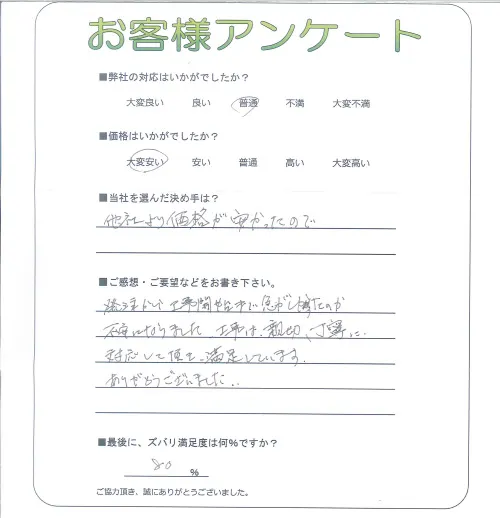 お客様アンケート
■弊社の対応はいかがでしたか?
大変良い 良い 普通 不満 大変不満
■価格はいかがでしたか?
大変安い 安い 普通 高い 大変高い
■当社を選んだ決め手は?
他社より価格が安かったので
■ご感想・ご要望などをお書き下さい。
工事
不安になりました 工事は、親切、丁寧に
対応して頂き、満足しています。
ありがとうございました。
■最後に、ズバリ満足度は何%ですか?
80 %
ご協力頂き、誠にありがとうございました。